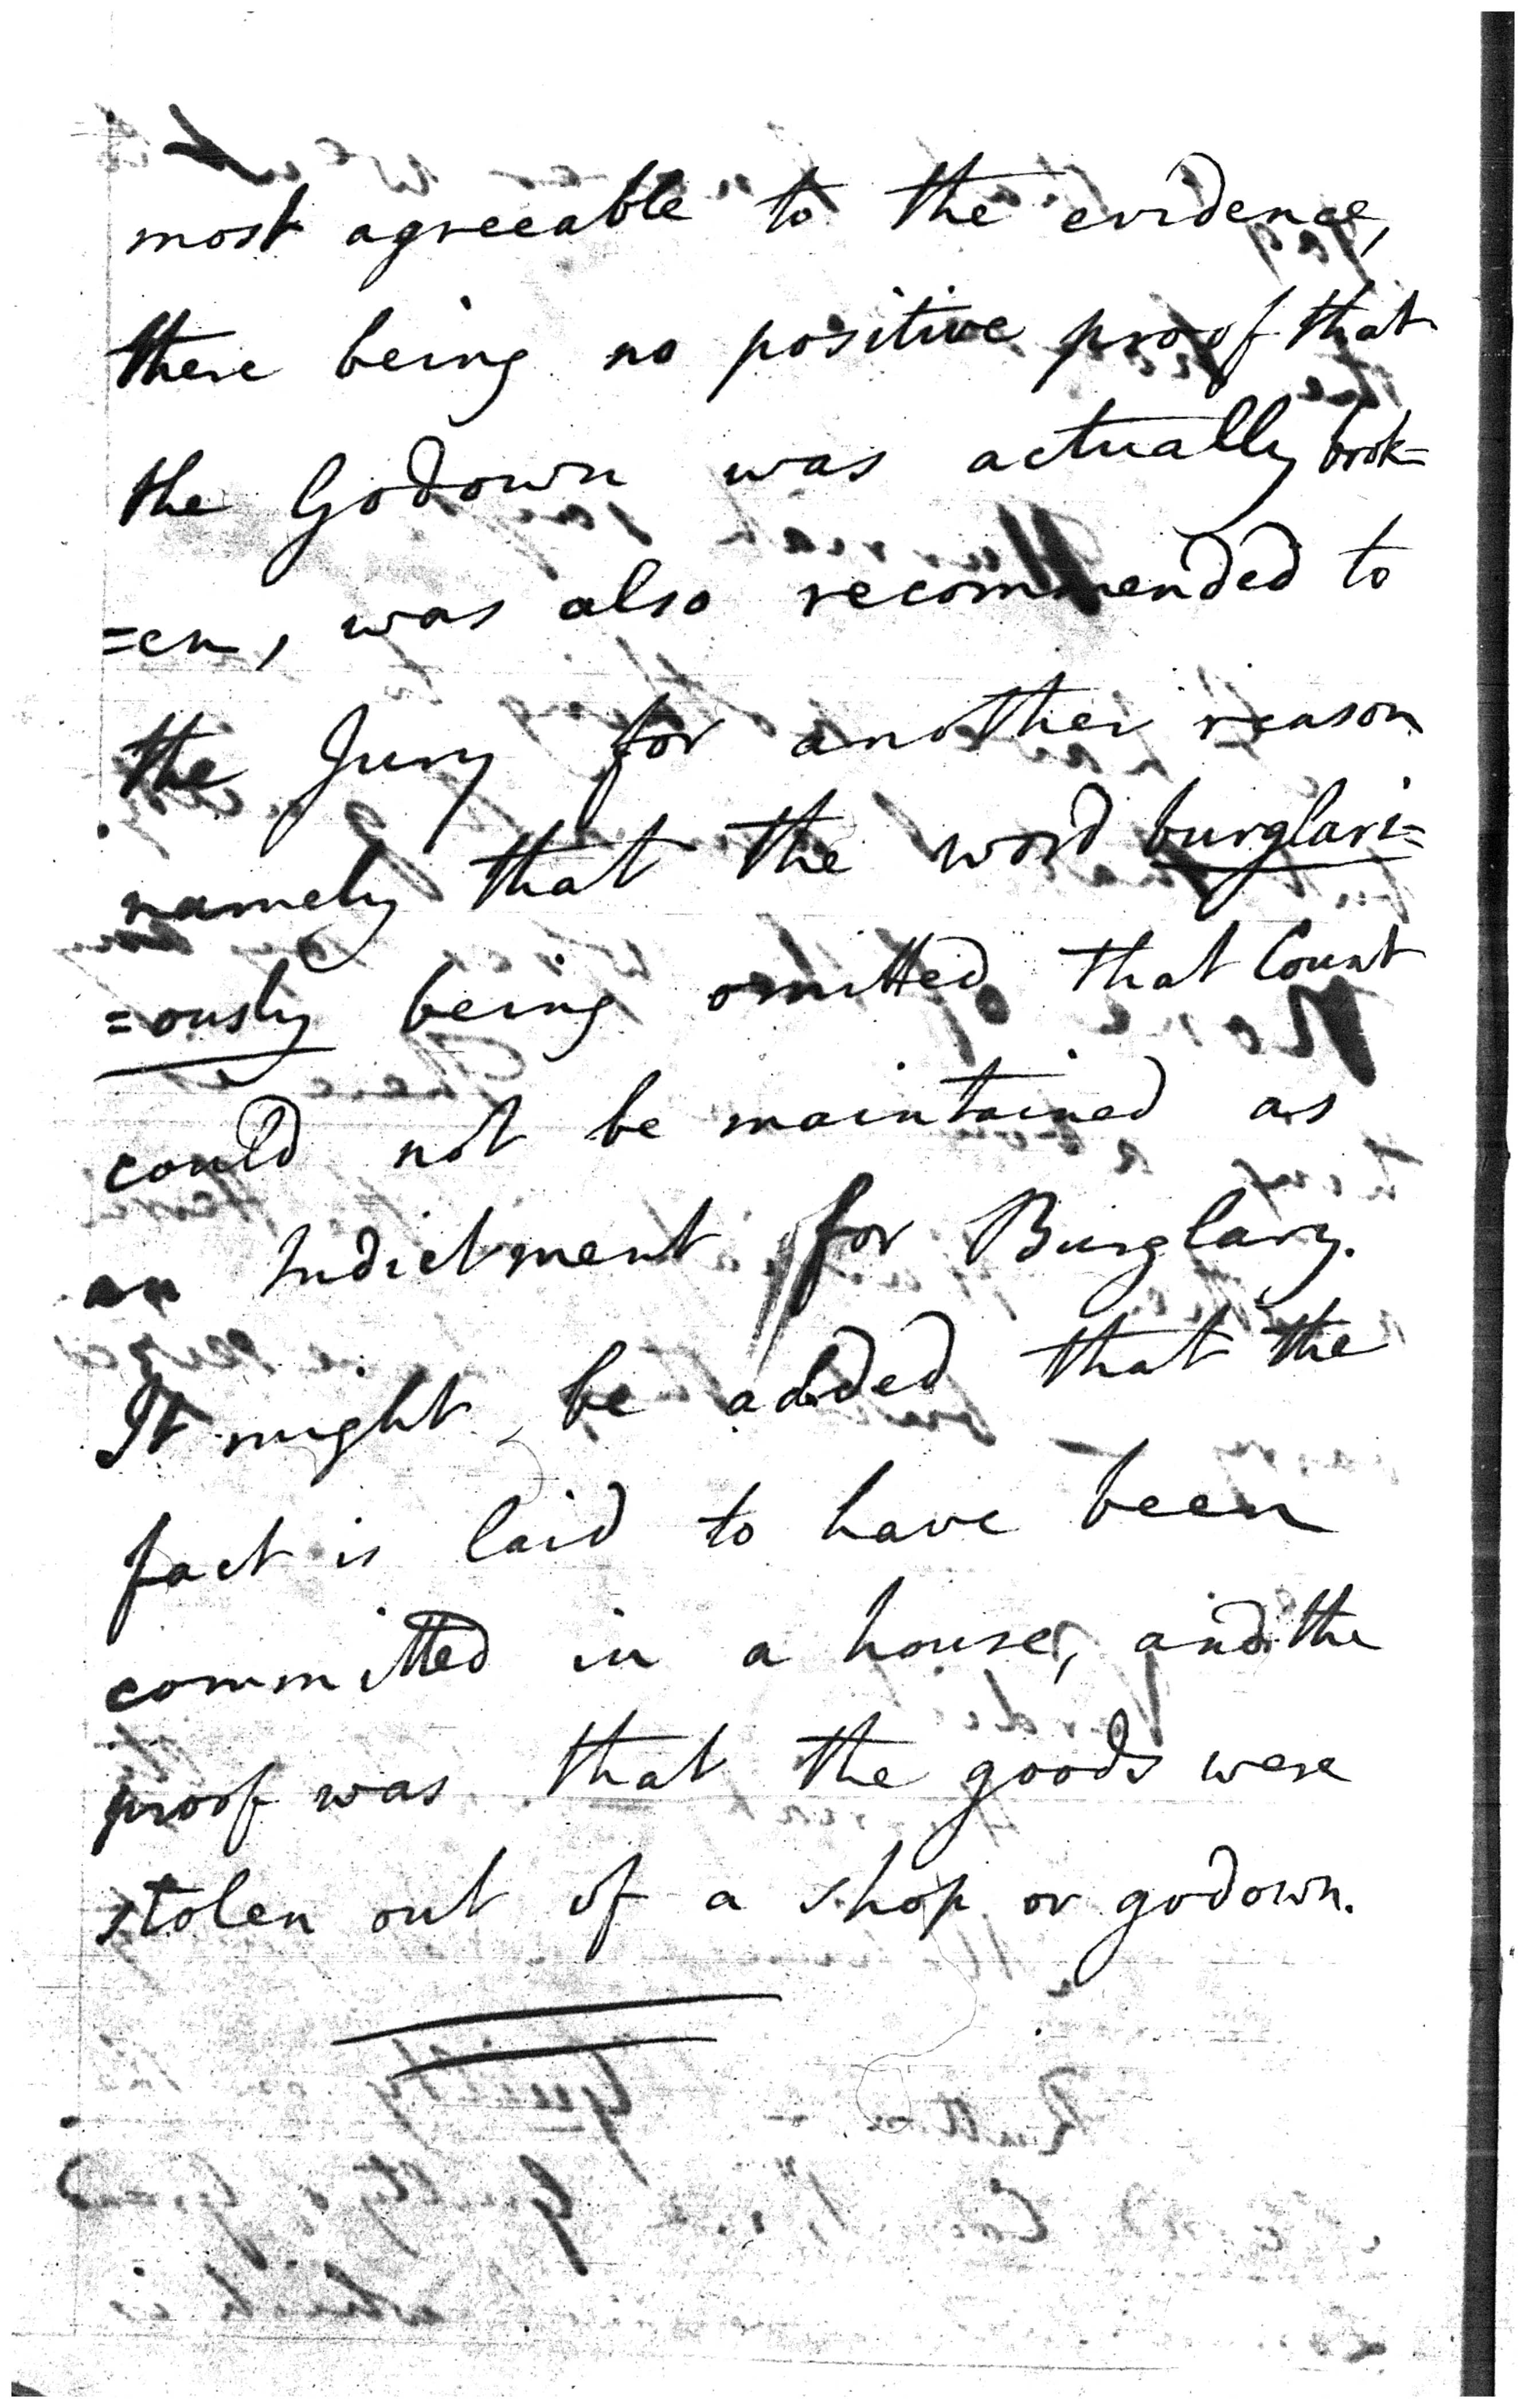 most agreeable to the evidence,
there being no positive proof that
the Godown was actually brok=
=en, was also recommended to
the Jury for another reason
namely that the word burglari=
=ously being omitted that Count
could not be maintained as
an Indictment for Burglary.
It might be added that the
fact is laid to have been
committed in a house, and the
proof was that the goods were
stolen out of a shop or godown.